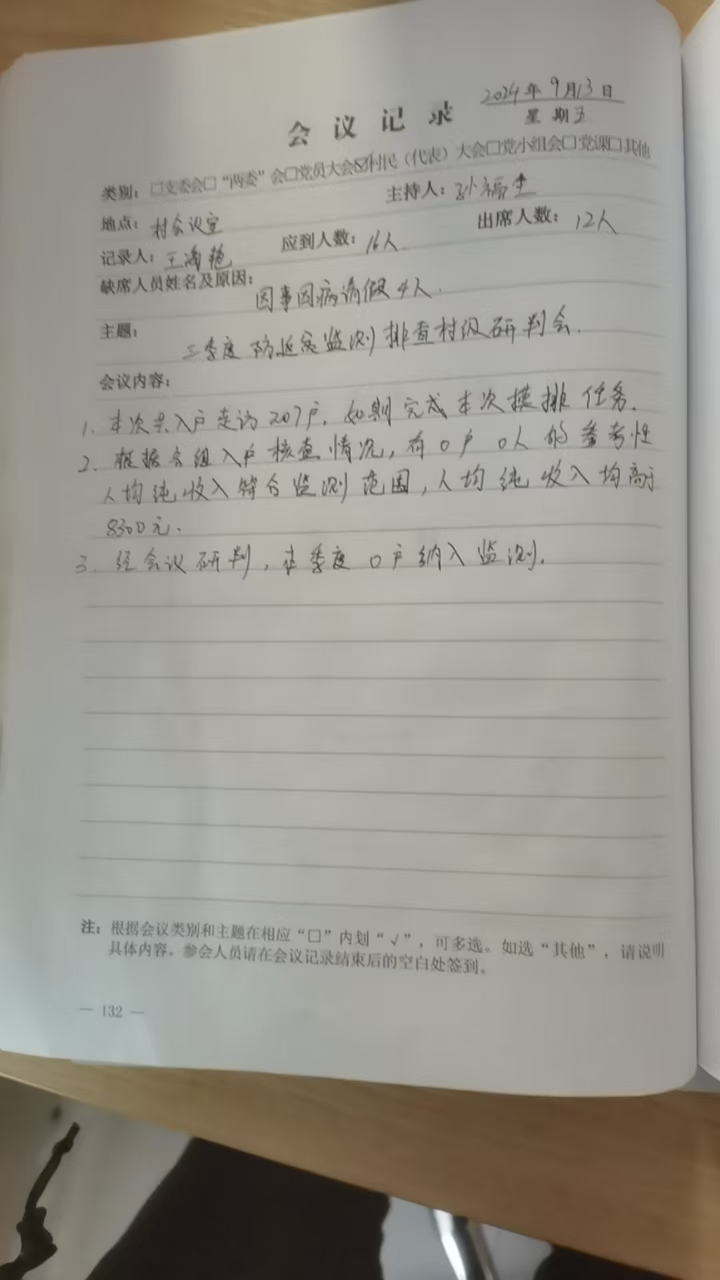 2024年9月13日
会议记录
星期五
类别：□支委会□“两委”会□党员大会☑村民（代表）大会□党小组会□党课□其他
地点：村会议室 主持人：孙福生
记录人：王海艳 应到人数：16人 出席人数：12人
缺席人员姓名及原因：
因事因病请假4人.
主题：
三季度防返贫监测排查村级研判会.
会议内容：
1. 本次共入户走访207户，如期完成本次摸排任务.
2. 根据分组入户核查情况，有0户0人的参考性
人均纯收入符合监测范围，人均纯收入均高于
8300元.
3. 经会议研判，本季度0户纳入监测.
注：根据会议类别和主题在相应“□”内划“√”，可多选。如选“其他”，请说明
具体内容。参会人员请在会议记录结束后的空白处签到。
— 132 —